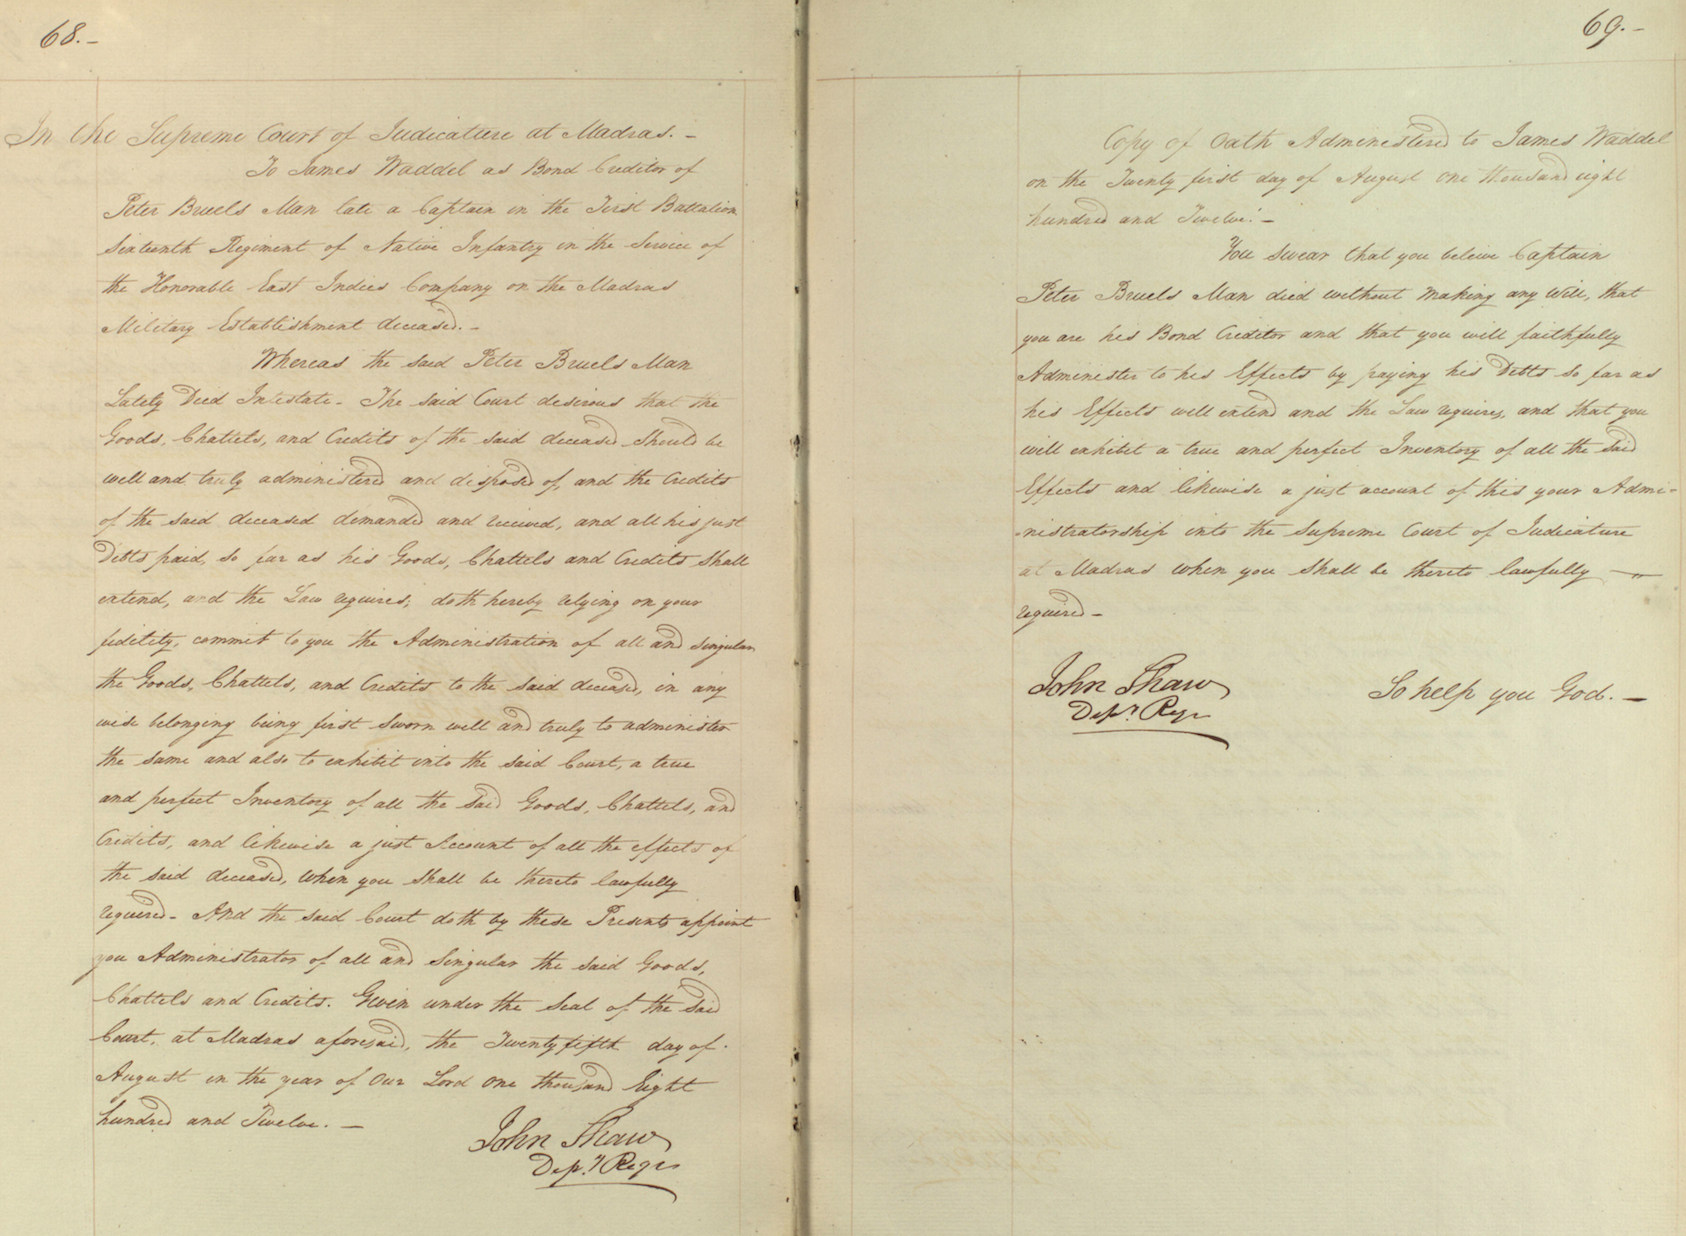 68.-
In the Supreme Court of Judicature at Madras. -
To James Waddel as Bond Creditor of
Peter Bruels Man late a Captain in the First Battalion
Sixteenth Regiment of Native Infantry in the Service of
the Honorable East Indies Company on the Madras
Military Establishment deceased. -
Whereas the said Peter Bruels Man
Lately Died Intestate - The said Court desirous that the
Goods, Chattels, and Credits of the said deceased should be
well and truly administered and disposed of, and the Credits
of the said deceased demanded and received, and all his just
Debts paid, so far as his Goods, Chattels and Credits shall
extend, and the Law requires; doth hereby relying on your
fidelity, commit to you the Administration of all and singular
the Goods, Chattels, and Credits to the said deceased, in any
wise belonging being first Sworn well and truly to administer
the same and also to exhibit into the said Court, a true
and perfect Inventory of all the said Goods, Chattels, and
Credits, and likewise a just Account of all the effects of
the said deceased, when you shall be thereto lawfully
required - And the said Court doth by these Presents appoint
you Administrator of all and Singular the said Goods,
Chattels and Credits. Given under the Seal of the said
Court, at Madras aforesaid, the Twenty fifth day of
August in the year of Our Lord One thousand Eight
hundred and Twelve. -
John Shaw
Depy Regr
69.-
Copy of Oath Administered to James Waddel
on the Twenty first day of August One thousand eight
hundred and Twelve: -
You swear that you beleive Captain
Peter Bruels Man died without making any Will, that
you are his Bond Creditor and that you will faithfully
Administer to his Effects by paying his Debts so far as
his Effects will extend and the Law requires, and that you
will exhibit a true and perfect Inventory of all the said
Effects and likewise a just account of this your Admi-
-nistratorship into the Supreme Court of Judicature
at Madras when you shall be thereto lawfully
required -
So help you God. -
John Shaw
Depy Regr